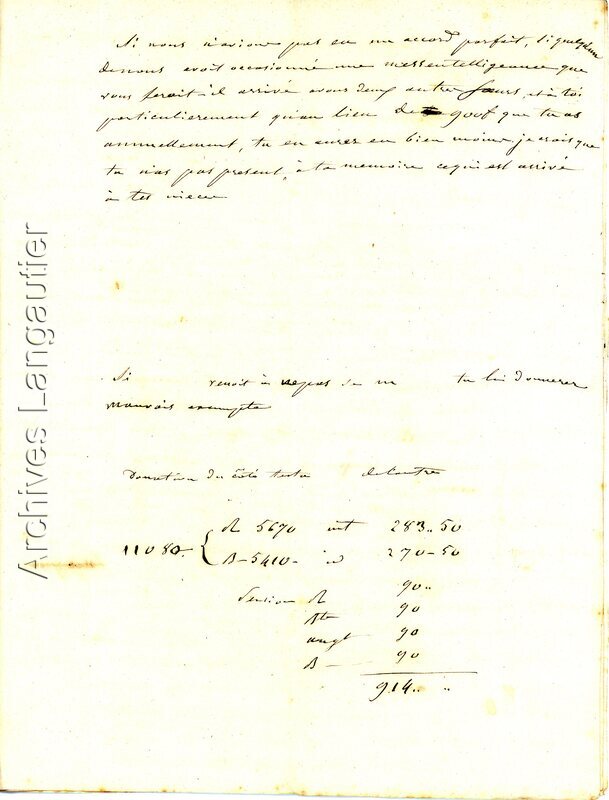 Si nous n'avions pas eu un accord parfait, si quelqu'un
de nous avoit occasionné une messentelligeance que
vous seroit-il arrivé a vous deux autres Sœurs, et à toi
particulierement qu'au lieu de 900f que tu as
annuellement, tu en aurez eu bien moins je crois que
tu n'as pas present, à ta memoire ce qui est arrivé
à tes
Si venoit à ne pas tu lui donnerez
mauvais exemple
Donation du coté de l'autre
11080. { R 5670 int 283..50
B-5410- id 270-50
Pension R 90..
90
augt 90
B- 90
914.. ..
Archives Langautier